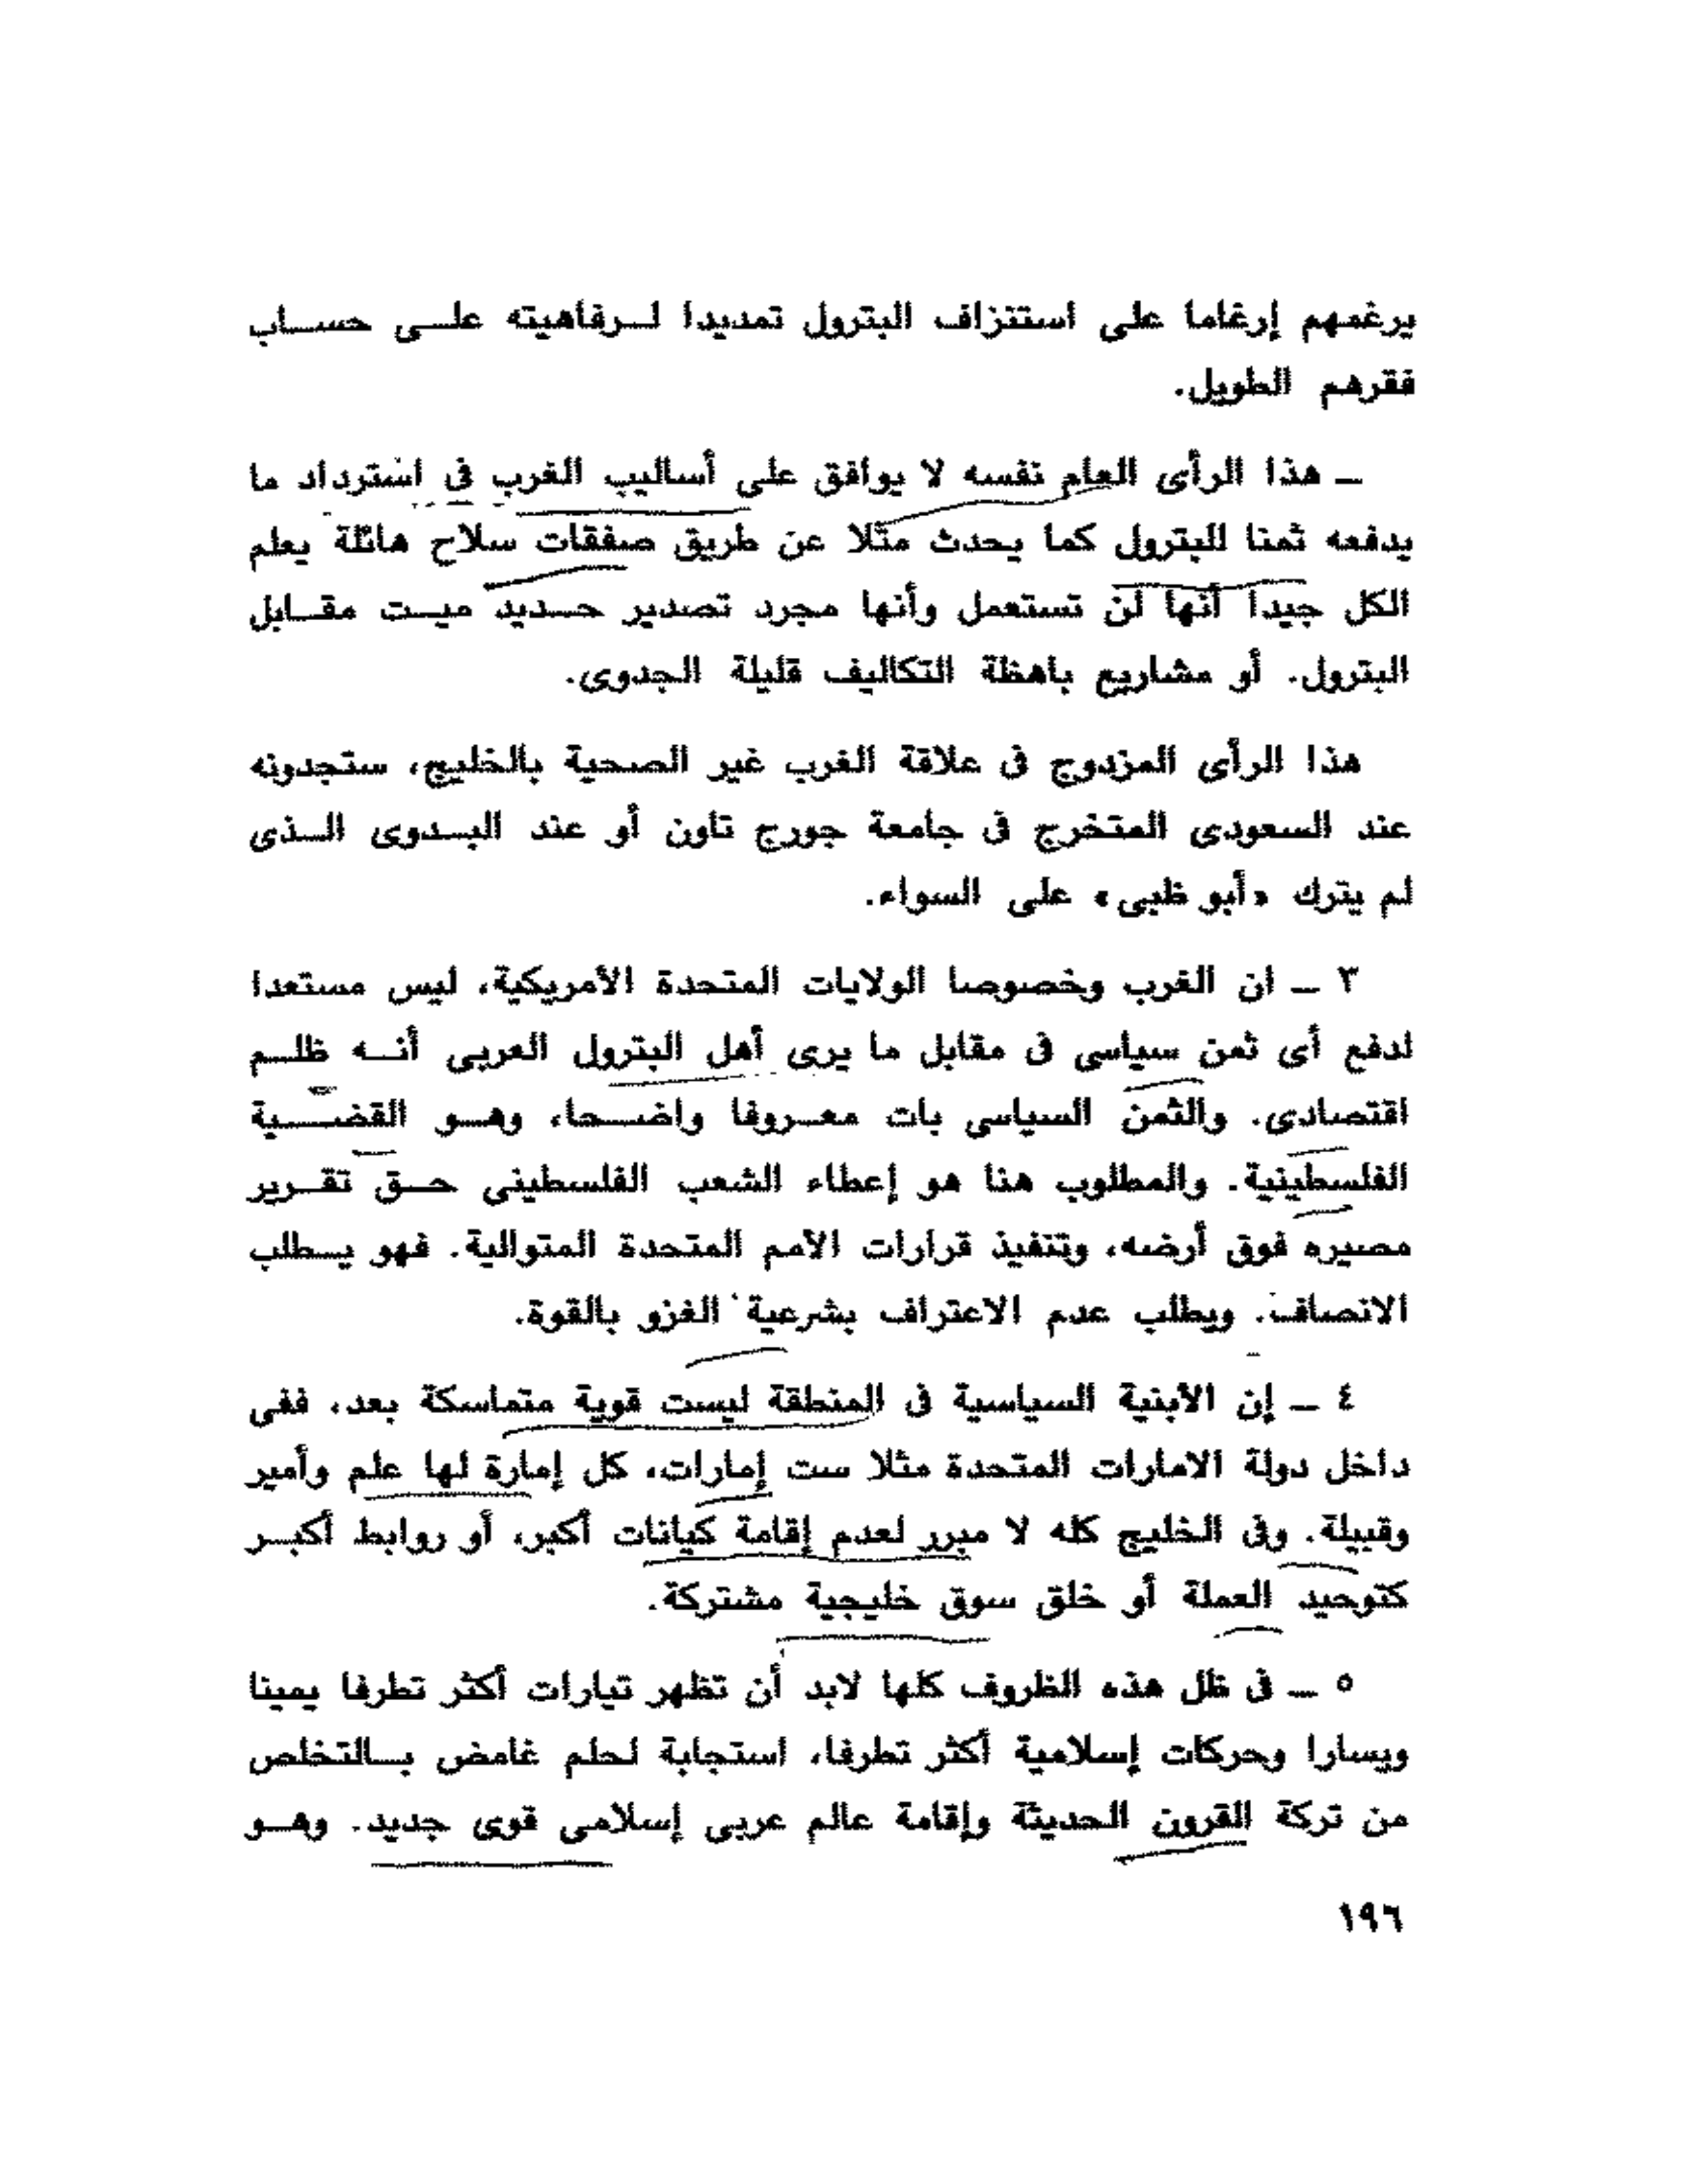 يرغمهم إرغاما على استنزاف البترول تمديدا لرفاهيته على حساب
فقرهم الطويل.
ـ هذا الرأى العام نفسه لا يوافق على أساليب الغرب فى استرداد ما
يدفعه ثمنا للبترول كما يحدث مثلا عن طريق صفقات سلاح هائلة يعلم
الكل جيدا أنها لن تستعمل وأنها مجرد تصدير حديد ميت مقابل
البترول. أو مشاريع باهظة التكاليف قليلة الجدوى.
هذا الرأى المزدوج فى علاقة الغرب غير الصحية بالخليج، ستجدونه
عند السعودى المتخرج فى جامعة جورج تاون أو عند البدوى الذى
لم يترك «أبو ظبى» على السواء.
٣ ـ ان الغرب وخصوصا الولايات المتحدة الأمريكية، ليس مستعدا
لدفع أى ثمن سياسى فى مقابل ما يرى أهل البترول العربى أنه ظلم
اقتصادى. والثمن السياسى بات معروفا واضحا، وهو القضية
الفلسطينية. والمطلوب هنا هو إعطاء الشعب الفلسطينى حق تقرير
مصيره فوق أرضه، وتنفيذ قرارات الأمم المتحدة المتوالية. فهو يطلب
الانصاف. ويطلب عدم الاعتراف بشرعية الغزو بالقوة.
٤ ـ إن الأبنية السياسية فى المنطقة ليست قوية متماسكة بعد، ففى
داخل دولة الامارات المتحدة مثلا ست إمارات، كل إمارة لها علم وأمير
وقبيلة. وفى الخليج كله لا مبرر لعدم إقامة كيانات أكبر، أو روابط أكبر
كتوحيد العملة أو خلق سوق خليجية مشتركة.
٥ ـ فى ظل هذه الظروف كلها لابد أن تظهر تيارات أكثر تطرفا يمينا
ويسارا وحركات إسلامية أكثر تطرفا، استجابة لحلم غامض بالتخلص
من تركة القرون الحديثة وإقامة عالم عربى إسلامى قوى جديد. وهو
١٩٦